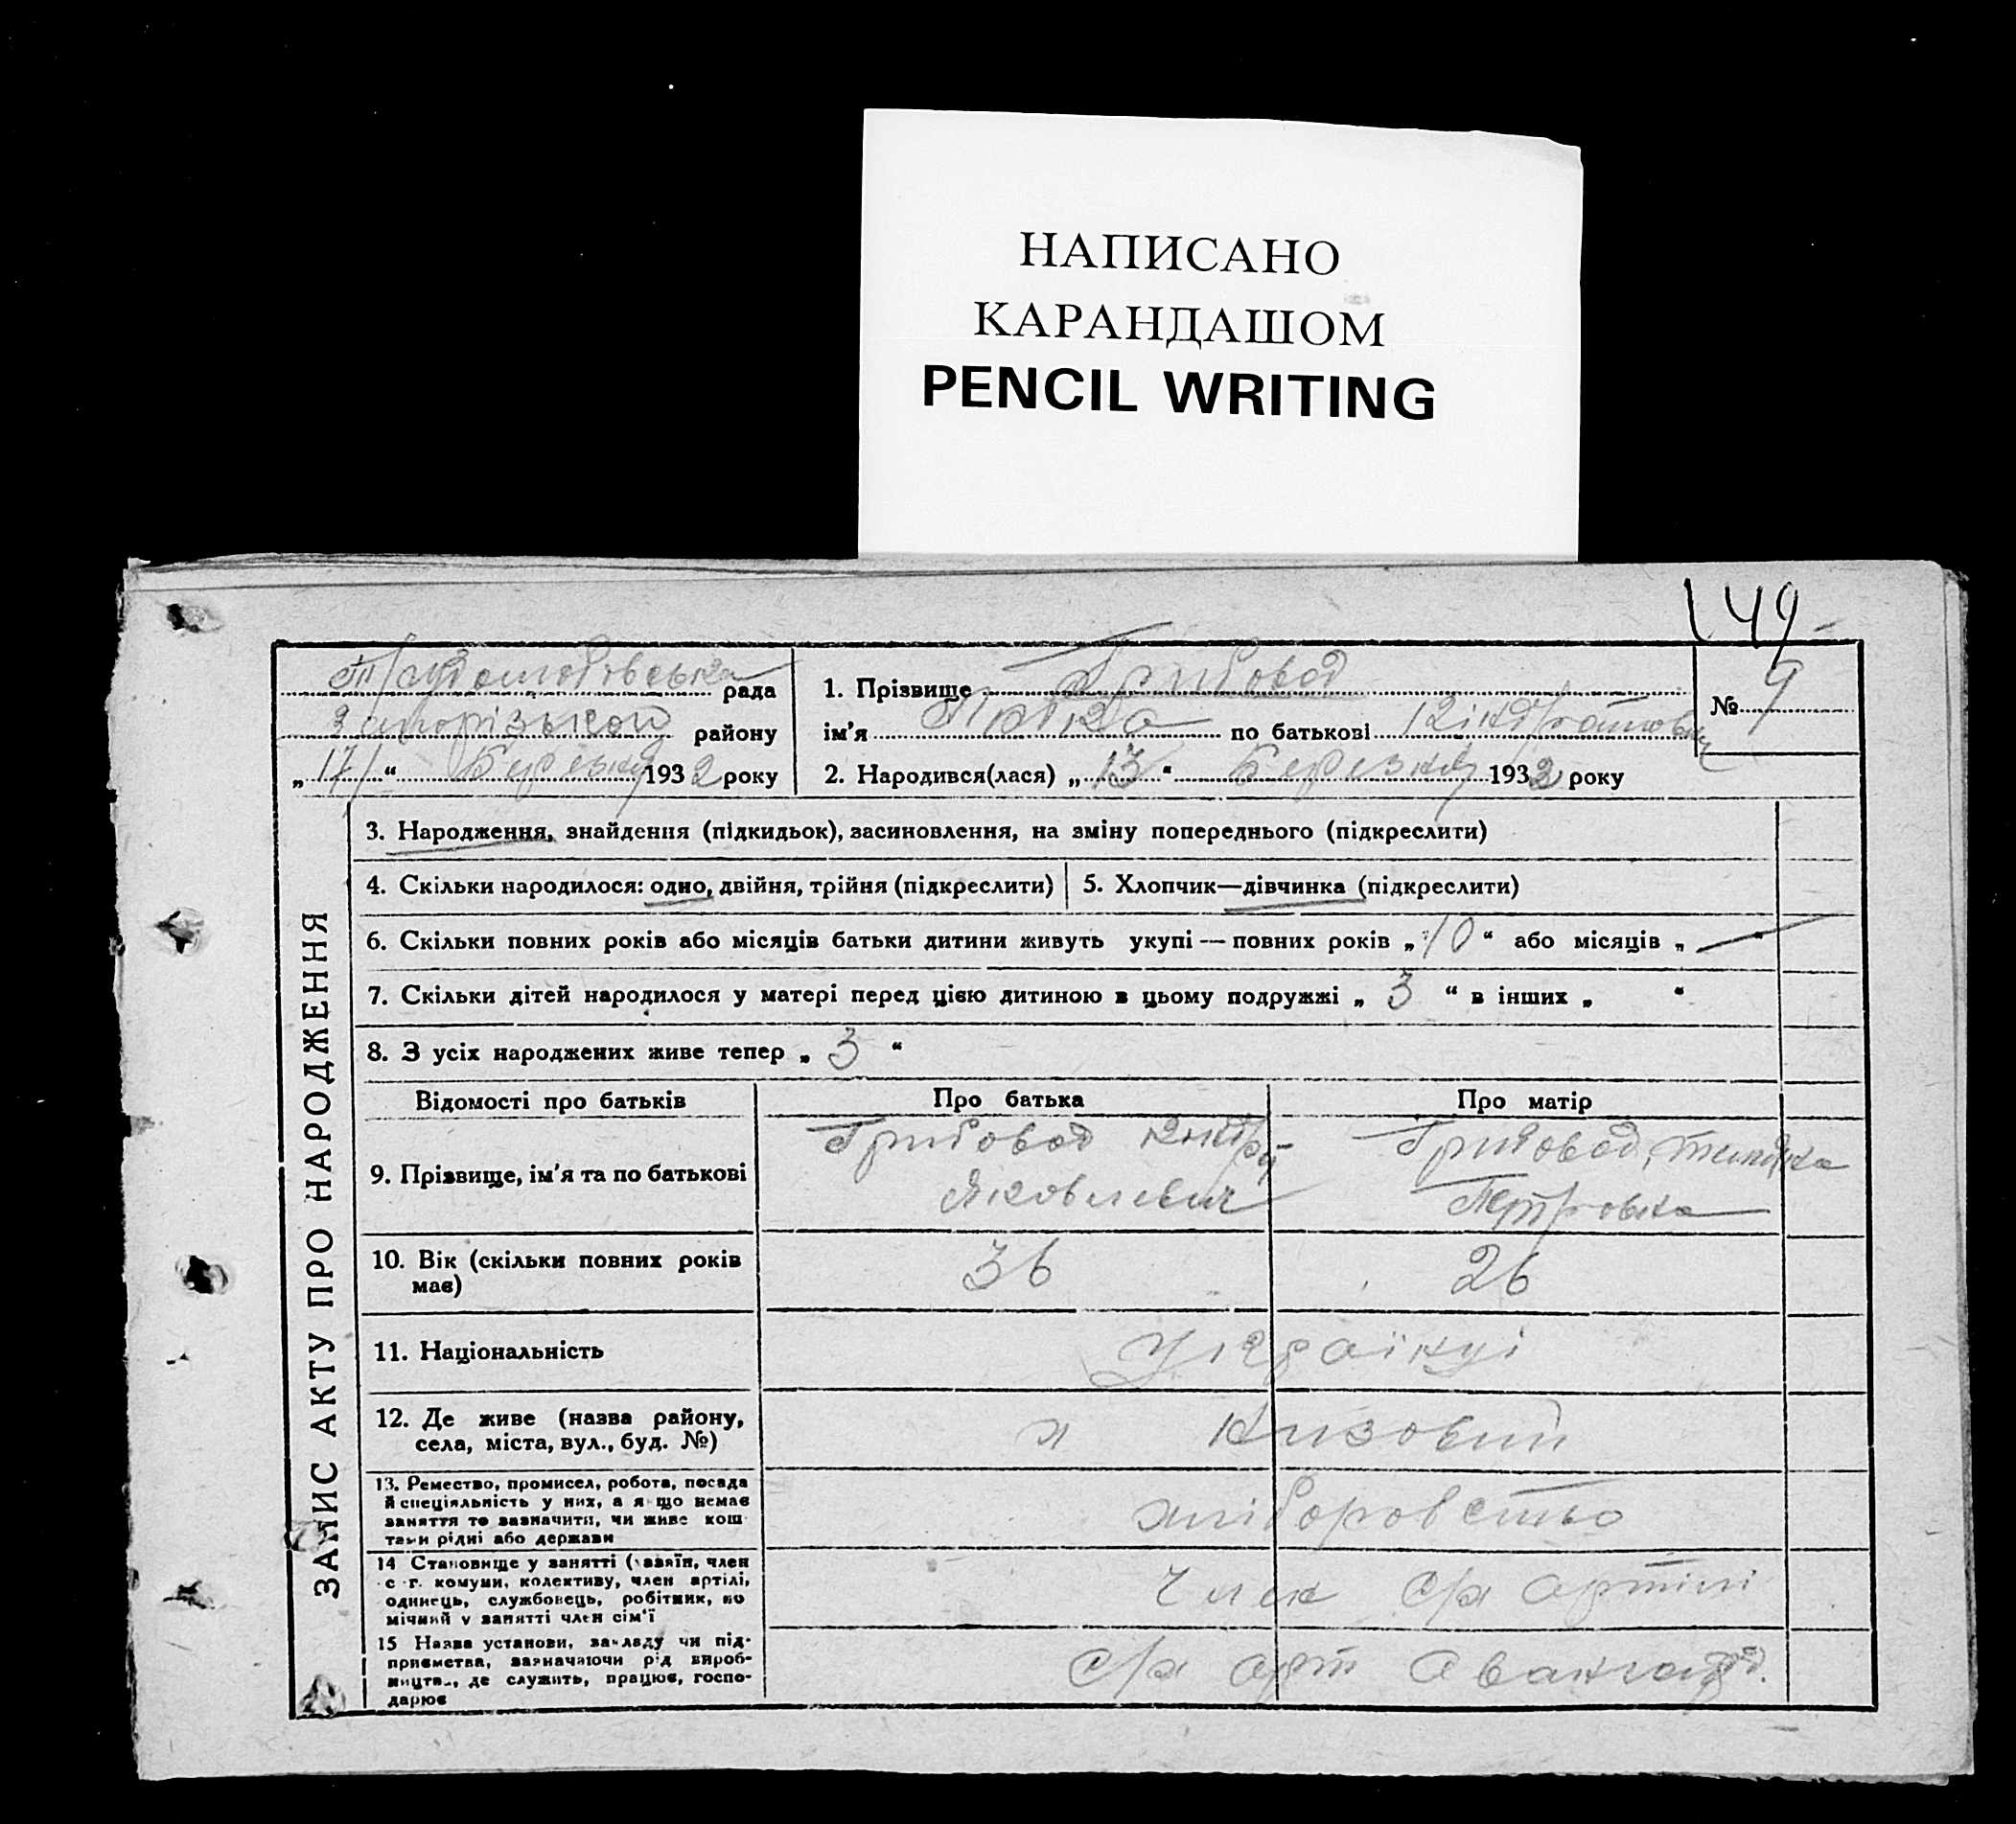 НАПИСАНО
КАРАНДАШОМ
PENCIL WRITING
149
рада
району
„ 17 “ Березня 1932 року
1. Прізвище Грибовод
ім'я по батькові
2. Народився(лася) „ 13 “ Березня 1932 року
№ 9
ЗАПИС АКТУ ПРО НАРОДЖЕННЯ
3. Народження, знайдення (підкидьок), засиновлення, на зміну попереднього (підкреслити)
4. Скільки народилося: одно, двійня, трійня (підкреслити)
5. Хлопчик—дівчинка (підкреслити)
6. Скільки повних років або місяців батьки дитини живуть укупі — повних років „ 10 “ або місяців „ — “
7. Скільки дітей народилося у матері перед цією дитиною в цьому подружжі „ 3 “ в інших „ “
8. З усіх народжених живе тепер „ 3 “
Відомості про батьків Про батька Про матір
9. Прізвище, ім'я та по батькові
Грибовод
Яковлевич
Грибовод
Петровна
10. Вік (скільки повних років
має)
36 26
11. Національність
Українці
12. Де живе (назва району,
села, міста, вул., буд. №)
х Низовий
13. Ремество, промисел, робота, посада
й спеціяльність у них, а якщо немає
заняття то зазначити, чи живе кош
тами рідні або держави
хліборобство
14 Становище у занятті (хазяїн, член
с.-г. комуни, колективу, член артілі,
одинець, службовець, робітник, по
мічний у занятті член сім'ї
Член с/х артілі
15 Назва установи, закладу чи під-
приємства, зазначаючи рід вироб-
ництва, де служить, працює, госпо-
дарює
с/х арт Авангард.